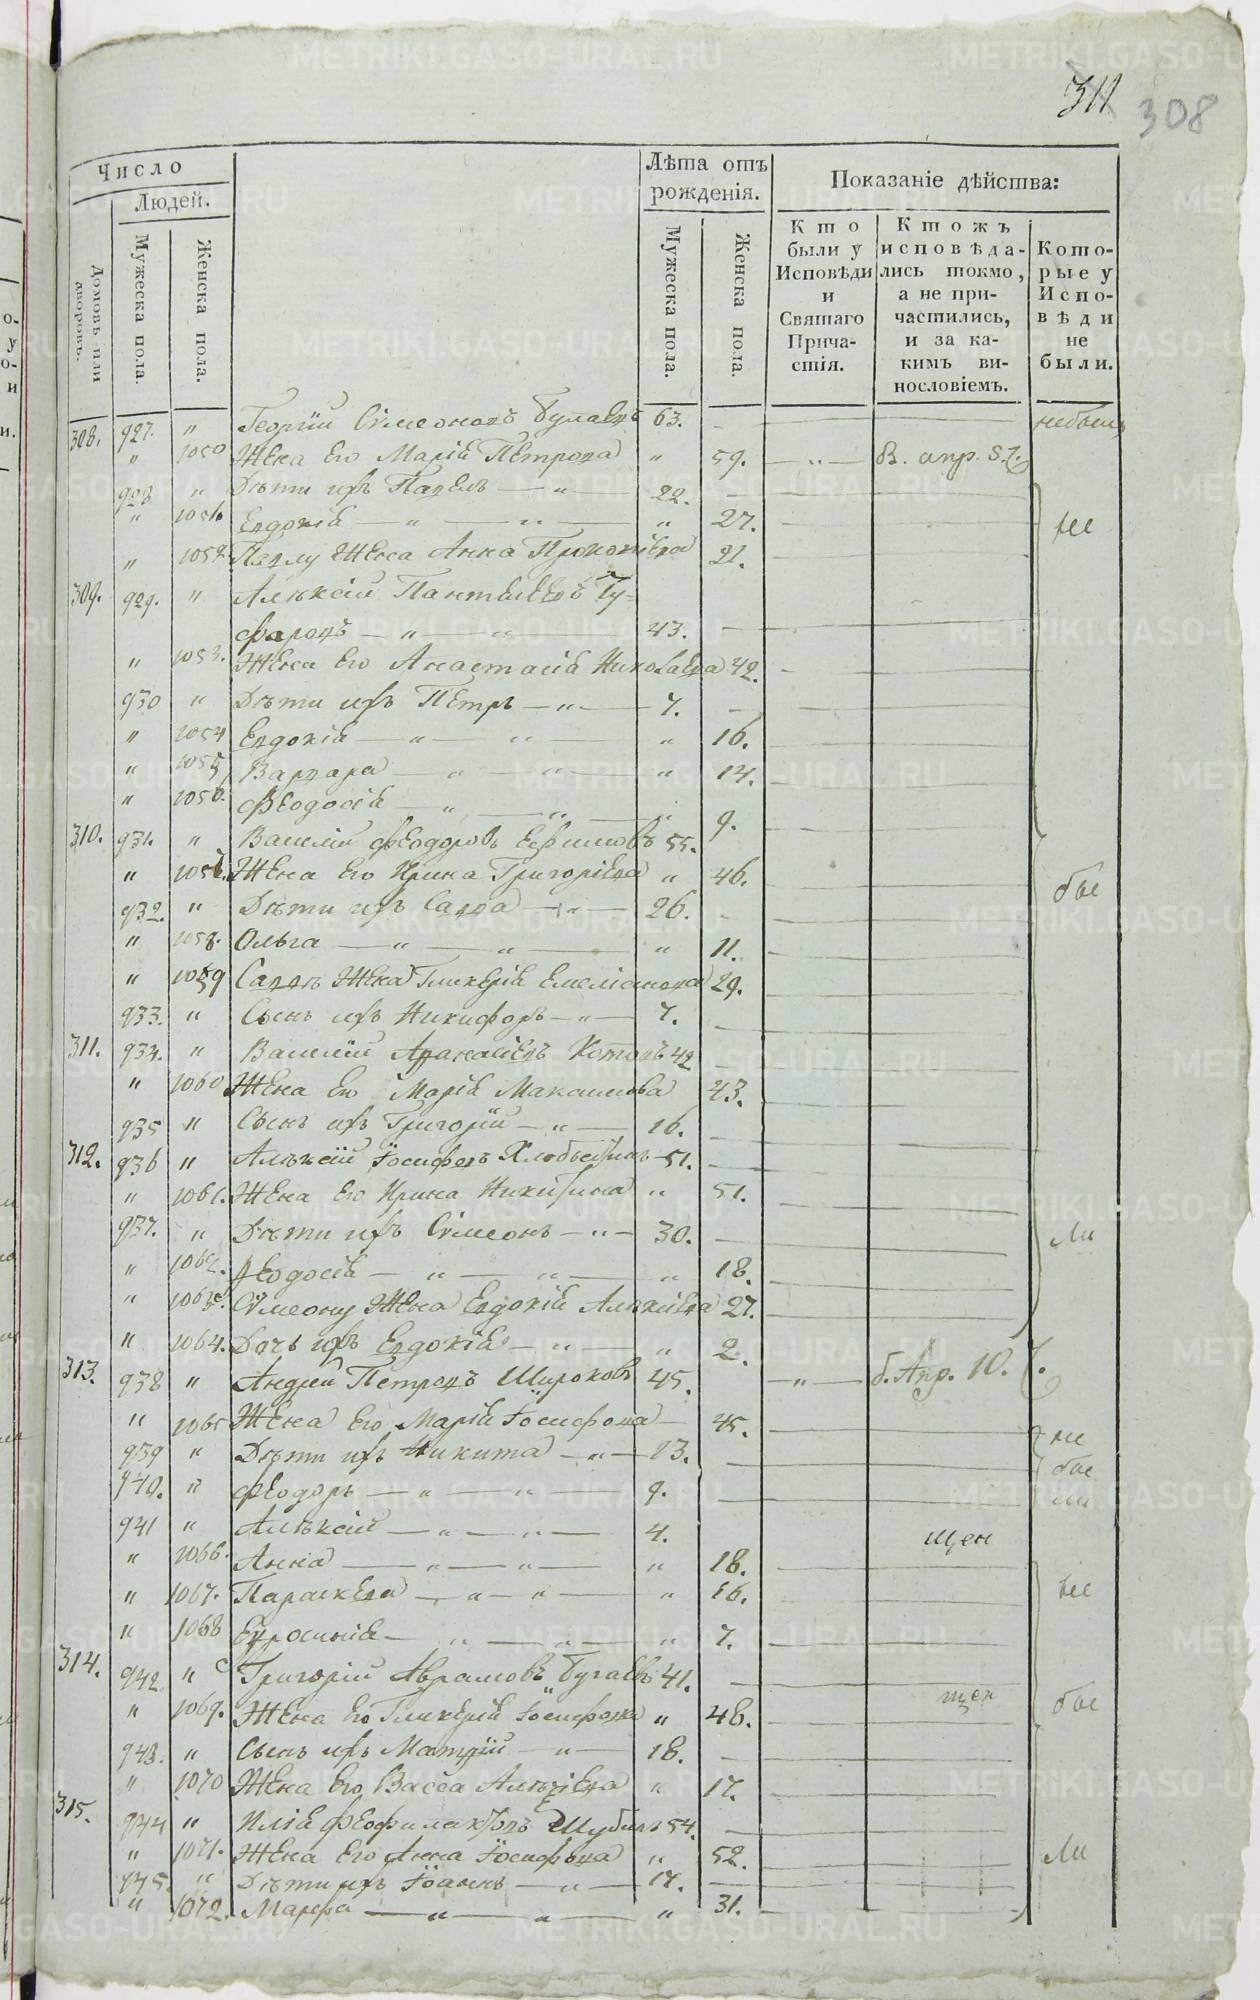 311 308
Число
Людей.
Домовъ или дворовъ.
Мужеска пола.
Женска пола.
Лѣта отъ рожденія.
Мужеска пола.
Женска пола.
Показаніе дѣйства:
Кто были у Исповѣди и Святаго Причастія.
Ктожъ исповѣдались токмо, а не причастились, и за какимъ винословіемъ.
Которые у Исповѣди не были.
308. 927. " Георгій Сѵмеоновъ 63. небылъ
" 1050 Жена Его Марія Петрова " 59. " В. апр. 57.
928 " Дѣти ихъ Павелъ " 22.
" 1051 Евдокія " " " 27. не
" 1052 Павлу Жена Анна Прокопіева 21.
309. 929. " Алексій Пантелеевъ Ту=
фаровъ " " 43.
" 1053. Жена Его Анастасія Николаева 42.
930 " Дѣти ихъ Петръ " 7.
" 1054 Евдокія " " " 16.
" 1055 Варвара " " " 14.
" 1056. Феодосія " " " 9.
310. 931. " Василій Феодоровъ Ефимовъ 55.
" 1057. Жена Его Ирина Григоріева " 46.
932. " Дѣти ихъ Савва " 26. бы
" 1058. Ольга " " " 11.
" 1059 Саввѣ Жена Гликерія Емеліанова 29.
933. " Сынъ ихъ Никифоръ " 7.
311. 934. " Василій Афанасіевъ Котовъ 42
" 1060 Жена Его Марія Максимова 43.
935 " Сынъ ихъ Григорій " 16.
312. 936 " Алексій Іосифовъ 51.
" 1061. Жена Его Ирина Никитина " 51.
937. " Дѣти ихъ Сѵмеонъ " 30. ли
" 1062. Феодосія " " " 18.
" 1063. Сѵмеону Жена Евдокія Алексіева 27.
" 1064. Дочь ихъ Евдокія " " 2.
313. 938 " Андрей Петровъ Широковъ 45. " б. Апр. 10.
" 1065 Жена Его Марія Іосифова 45.
939 " Дѣти ихъ Никита " 13. не
940. " Феодоръ " " 9. бы ли
941 " Алексій " " 4.
" 1066. Анна " " " 18.
" 1067. Параскева " " " 16. не
" 1068 Евфросинія " " " 7.
314. 942 " Григорій Аврамовъ Бугаевъ 41.
" 1069. Жена Его Гликерія Іосифова " 48. бы
943. " Сынъ ихъ " 18.
" 1070 Жена Его Васса Алексіева " 17.
315. 944 " Илія Феофилактовъ Шубинъ 54.
" 1071. Жена Его Анна Іосифова " 52. ли
945. " Дѣти ихъ Іоаннъ " 17.
" 1072. Марфа " " " 31.
METRIKI.GASO-URAL.RU